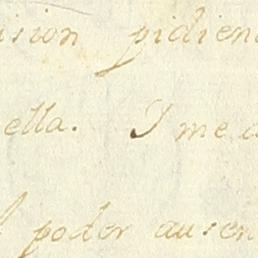 ision pidien
ella. I me a
l poder ausen